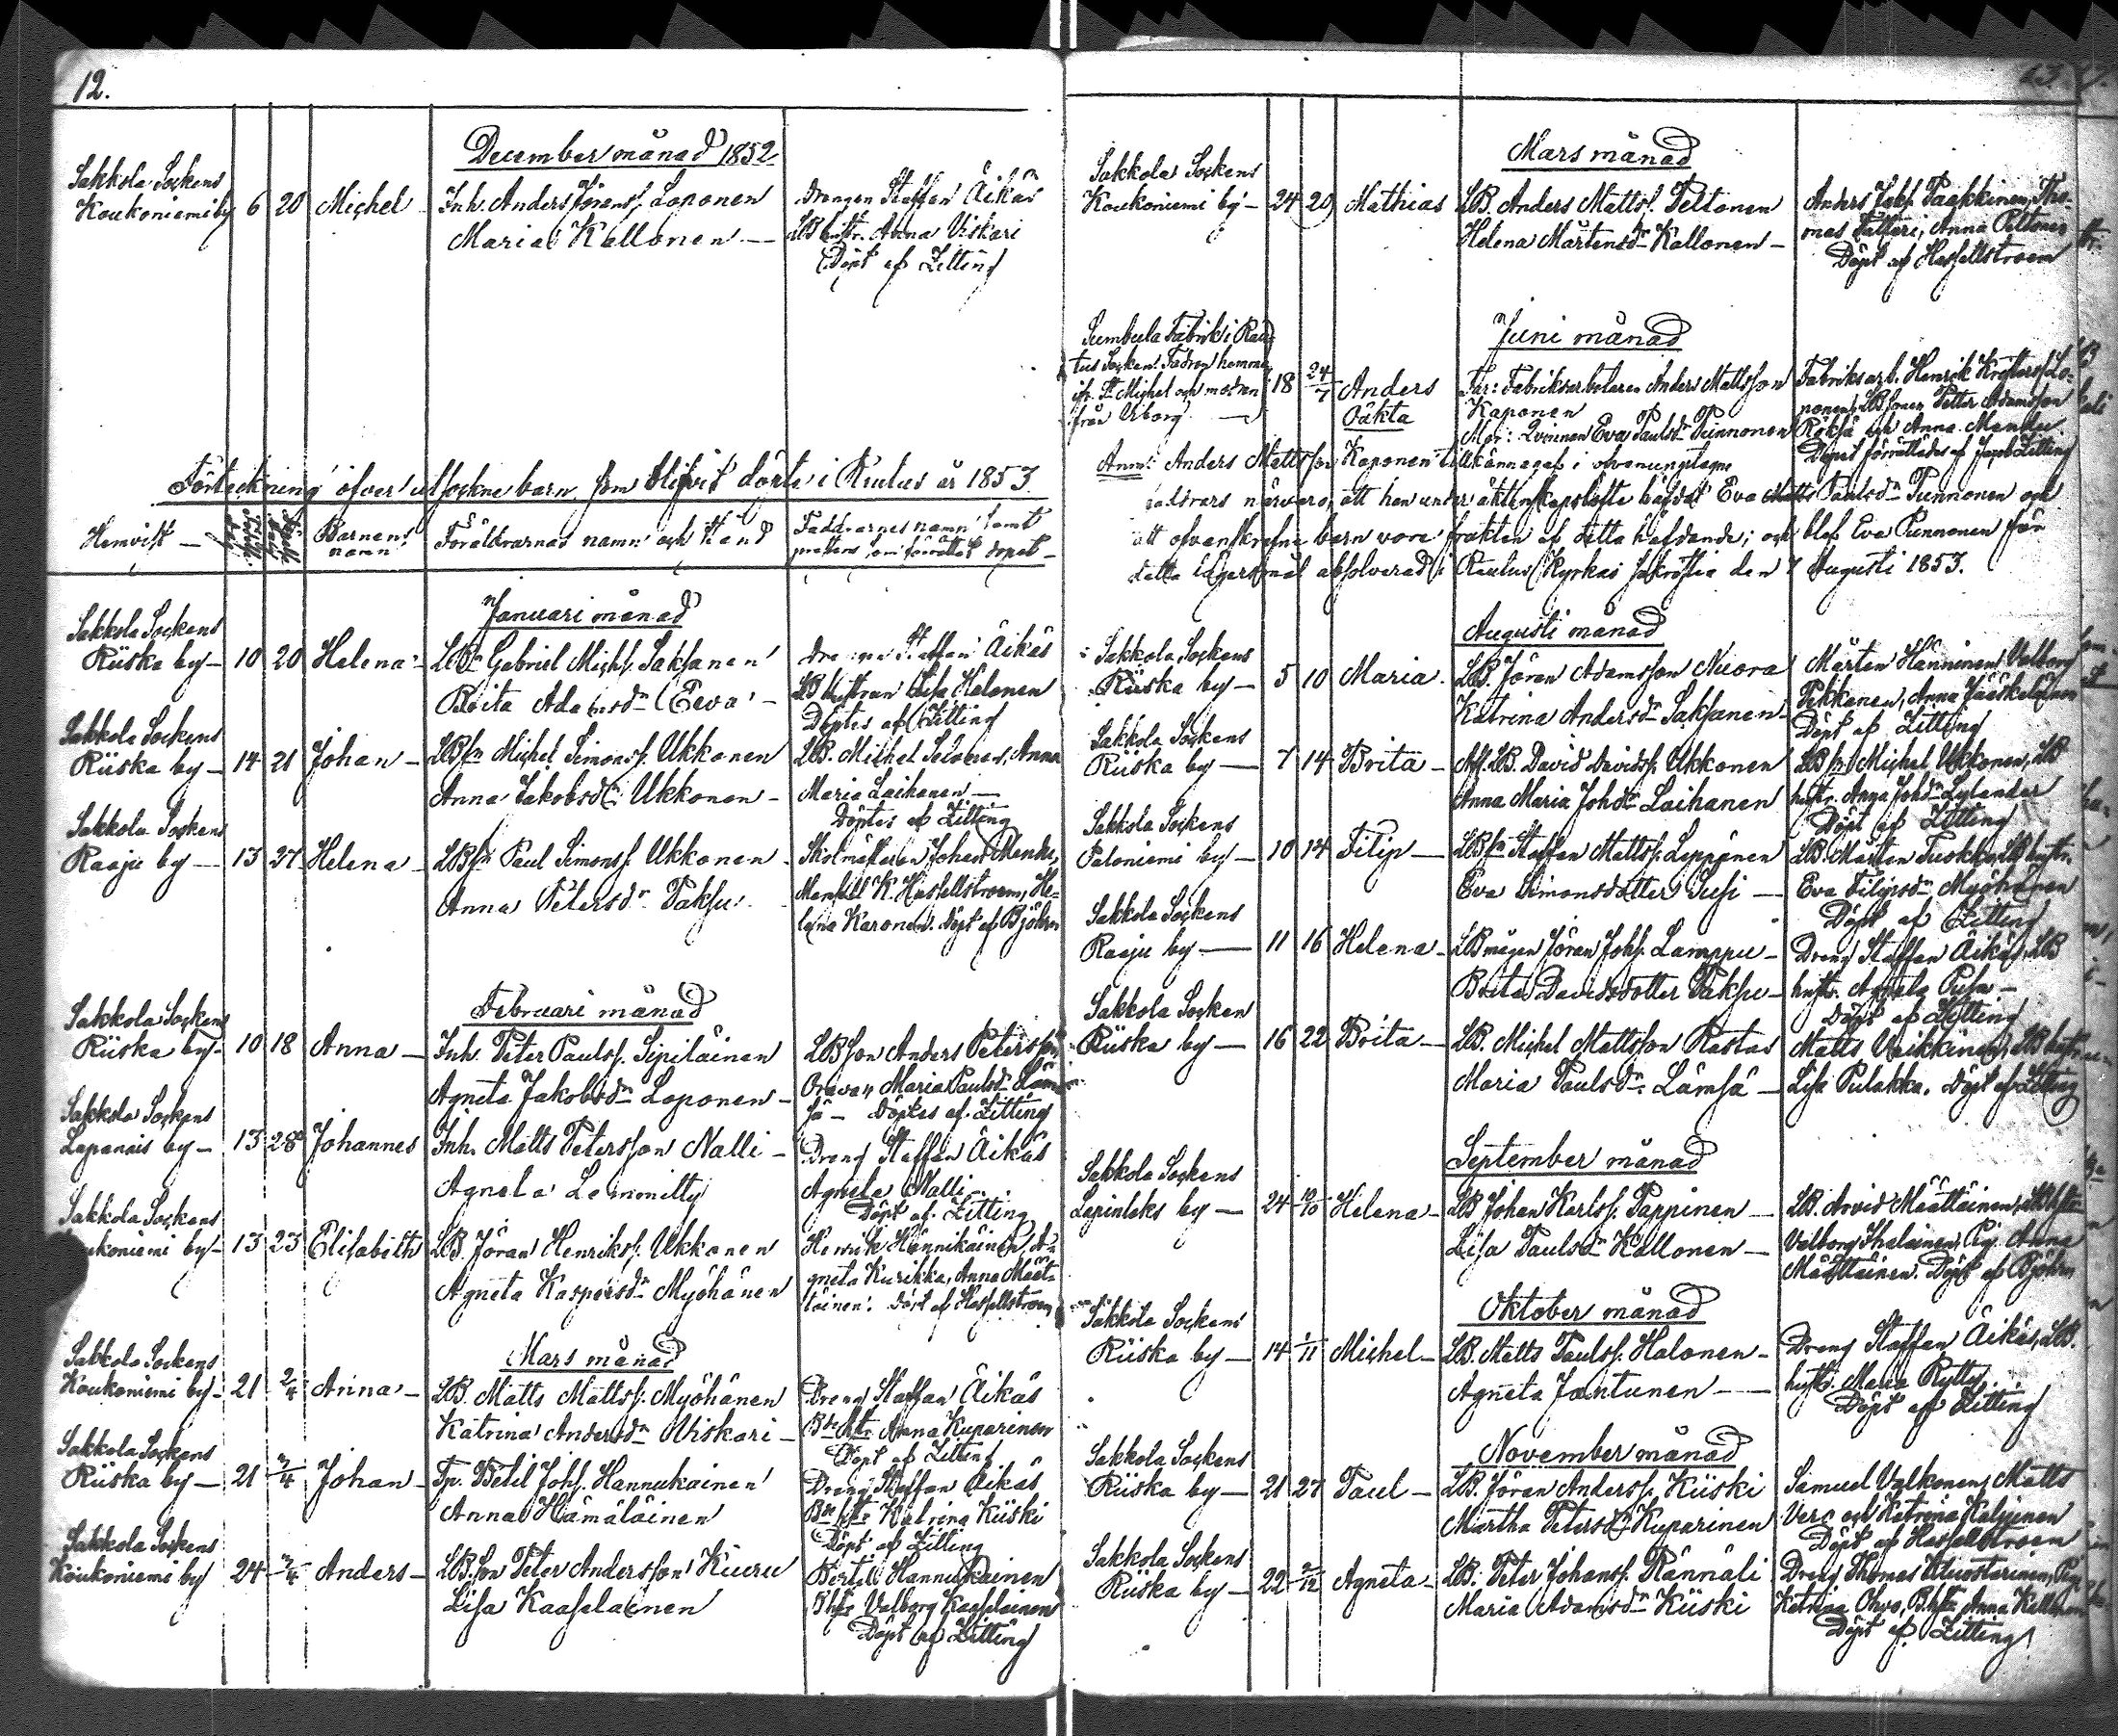 12.
December månad 1852
Sakkola Sockens
Koukoniemi by 6 20 Michel Inh. Anders Jöranss. Loponen
Maria Kallonen —
Drengen Staffan Äikäs
LB hustr. Anna Viskari
Döpt af Zitting
Förteckning öfver utsockne barn, som blifvit döpta i Rautus år 1853.
Hemvist —
Barnens namn
Föräldrarnas namn och stånd
Faddrarnes namn samt
prestens, som förrättat dopet —
Januari månad
Sakkola Sockens
Riiska by — 10 20 Helena — LBr Gabriel Michs. Saksanen
Brita Adamsdr (Eeva) —
Staffan Äikäs
LB hustrun Lisa Halonen
Döptes af Zitting
Sakkola Sockens
Riiska by — 14 21 Johan — LBsn Michel Simonss. Ukkonen
Anna Jakobsdr Ukkonen —
LB. Michel Selonen, Anna
Maria Laihanen —
Döptes af Zitting
Sakkola Sockens
Raaju by — 13 27 Helena — LBsn Paul Simonss. Ukkonen —
Anna Petersdr Paksu
Skolmästaren Johan Mentu,
K. Hassellstroem, He-
lena Karonen. Döpt af Björkm
Februari månad
Sakkola Sockens
Riiska by — 10 18 Anna — Inh. Peter Paulss. Sipiläinen
Agneta Jakobsdr Loponen —
LBson Anders Petersson
Orava, Maria Paulsdr Läm-
sä — Döptes af Zitting
Sakkola Sockens
Lapanais by — 13 28 Johannes Inh. Matts Petersson Nalli —
Agneta Lemmitty
Dreng Staffan Äikäs
Agneta Nalli
Döpt af Zitting
Sakkola Sockens
Koukoniemi by — 13 23 Elisabeth LB. Jöran Henrikss. Ukkonen
Agneta Kaspersdr Myöhänen
Henrik Hännikäinen, A-
gneta Kurikka, Anna Määt-
täinen. Döpt af Hassellstroem
Mars månad
Sakkola Sockens
Koukoniemi by — 21 2/4 Anna — LB. Matts Mattss. Myöhänen
Katrina Andersdr Viskari —
Dreng Staffan Äikäs
Bdehstr Anna Kuparinen
Döpt af Zitting
Sakkola Sockens
Riiska by — 21 2/4 Johan — Tp. Betil Johs. Hannukainen
Anna Hämäläinen
Dreng Staffan Äikäs
Bdehstr Katrina Kiiski
Döpt af Zitting
Sakkola Sockens
Koukoniemi by 24 2/4 Anders — LB.son Peter Andersson Kiuru
Lisa Kaasalainen
Bertil Hannukainen
Bhstr Valborg Kaasalainen
Döpt af Zitting
Mars månad
Sakkola Sockens
Koukoniemi by — 24 29 Mathias LB. Anders Mattss. Peltonen
Helena Mårtensdr Kallonen —
Anders Jakss. Paakkinen, Tho-
mas Tatteri, Anna Peltonen
Döpt af Hassellstroem
Juni månad
Sumbula Fabrik i Rau-
tus Socken. Fadren hemma
ifr. St. Michel och modren
från Viborg —
18 24/7 Anders
Oäkta
Far: Fabriksarbetaren Anders Mattsson
Kaponen
Mor: Qvinnan Eva Paulsdr Punnonen
Fabriksarb. Henrik Kristerss. Lo-
ponen, LBsonen Petter Adamsson
Röksä och Anna Mentu
Dopet förrättades af Jacob Zitting
Anm: Anders Mattsson Kaponen tillkännagaf i ofvanupptagne
fadrars närvaro, att han under äktenskapslöfte häfdat Eva Paulsdr Punnonen och
att ofvanskrefne barn vore frukten af detta häfdande; och blef Eva Punnonen för
detta lägersmål absolverad i Rautus Kyrkas sakristia den 7 Augusti 1853.
Augusti månad
Sakkola Sockens
Riiska by — 5 10 Maria LB. Jöran Adamsson Nuora
Katrina Andersdr Saksanen —
Mårten Hänninen, Valborg
Pekkanen, Anna Jääskeläinen
Döpt af Zitting
Sakkola Sockens
Riiska by — 7 14 Brita — Afl. LB. David Davidss. Ukkonen
Anna Maria Johsdr Laihanen
LBsn Michel Ukkonen, LB
hustr. Anna Johsdr Lylander
Döpt af Zitting
Sakkola Sockens
Paloniemi by — 10 14 Filip — LBsn Staffan Mattss. Leppänen
Eva Simonsdotter Susi —
LB. Mårten Tuokko, LB hustr.
Eva Filipsdr Myöhänen
Döpt af Zitting
Sakkola Sockens
Raaju by — 11 16 Helena — LBmågen Jöran Johs. Lamppu —
Brita Davidsdotter Paksu —
Dreng Staffan Äikäs, LB
hustr. Agneta Pusa —
Döpt af Zitting
Sakkola Socken
Riiska by — 16 22 Brita — LB. Michel Mattsson Rastas
Maria Paulsdr Lämsä —
Matts Vaikkinen, LB hustrun
Lisa Pulakka. Döpt af Zitting
September månad
Sakkola Sockens
Lapinlaks by — 24 10/10 Helena — LB Johan Karlss. Pappinen —
Lisa Paulsdr Kallonen —
LB. Arvid Määttäinen, LBhstr
Valborg Ihalainen, Pig. Anna
Määttäinen. Döpt af Björkm
Oktober månad
Sakkola Sockens
Riiska by — 14 1/11 Michel — LB. Matts Paulss. Halonen —
Agneta Jantunen —
Dreng Staffan Äikäs, LB.
hustr. Maria Rytty
Döpt af Zitting
November månad
Sakkola Sockens
Riiska by — 21 27 Paul — LB. Jöran Anderss. Kiiski
Martha Petersdr Kuparinen
Samuel Valkonen, Matts
Vere och Katrina Kaljunen
Döpt af Hassellstroem
Sakkola Sockens
Riiska by — 22 2/12 Agneta — LB. Peter Johanss. Rännäli
Maria Adamsdr Kiiski
Dreng Thomas Pig.
Katrina Orvo, B.hstr Anna Kallonen
Döpt af Zitting